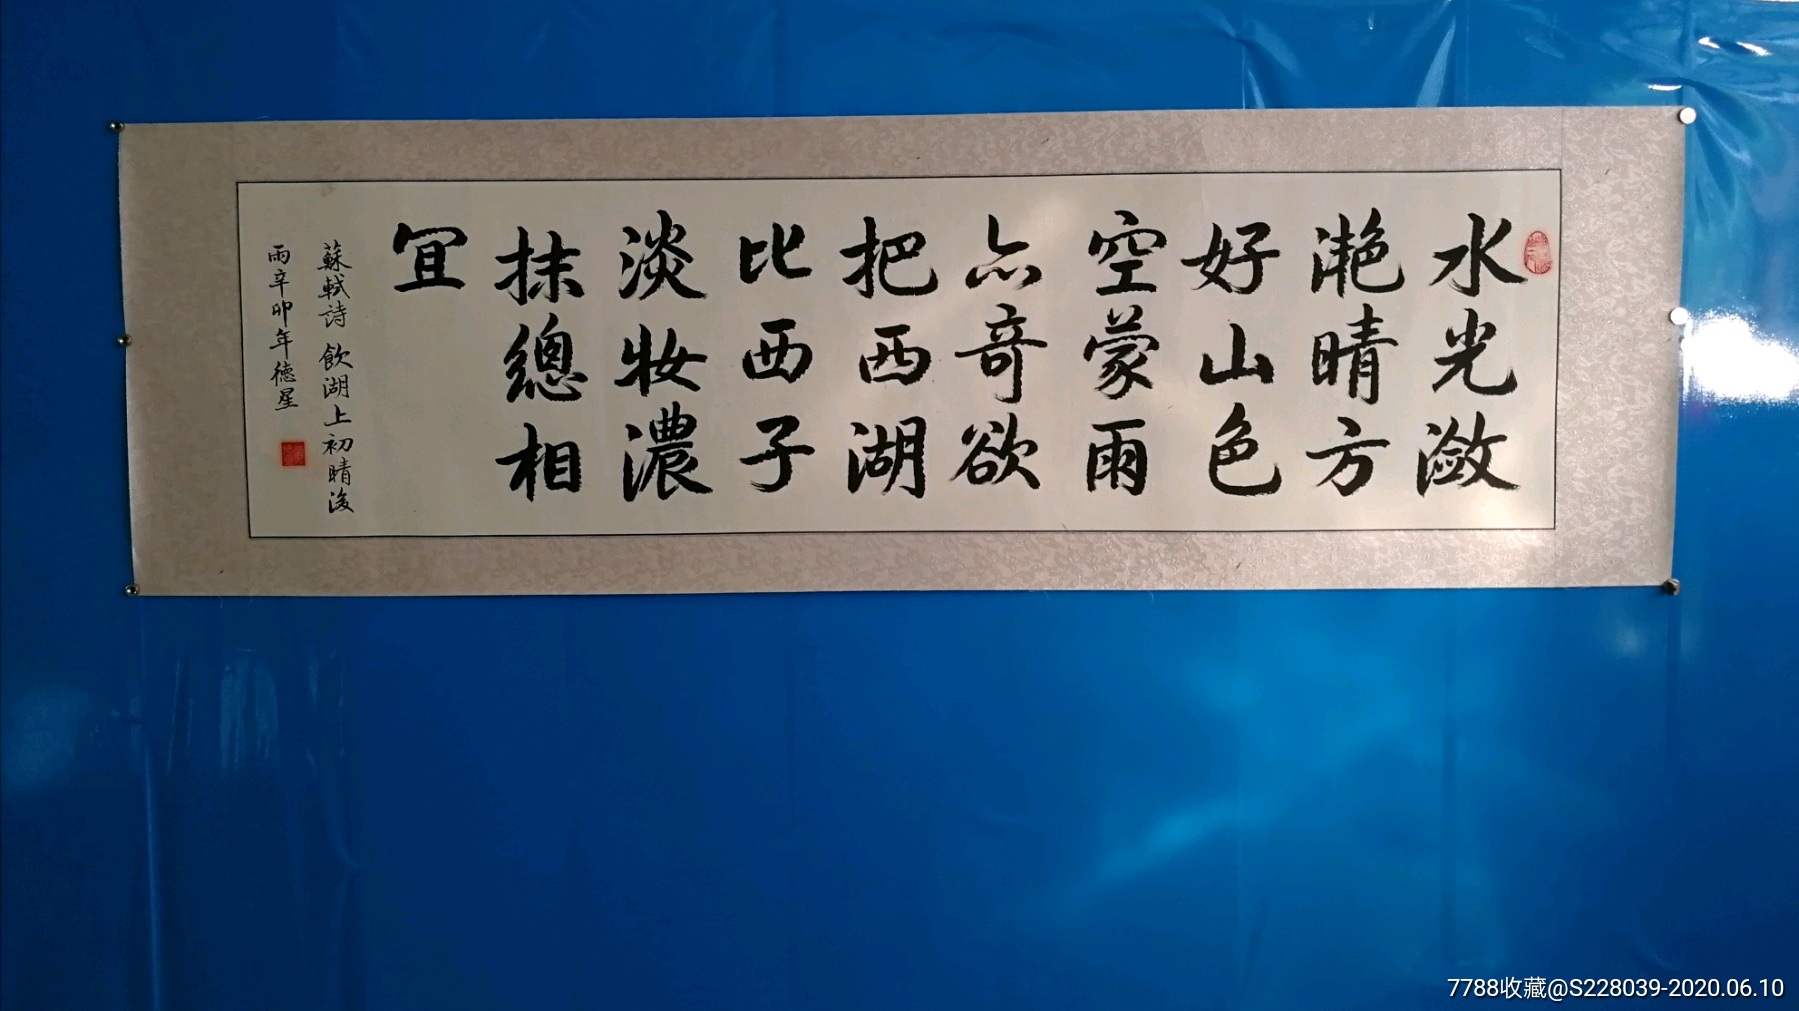 水光潋
滟晴方
好山色
空蒙雨
亦奇欲
把西湖
比西子
淡妝濃
抹總相
宜
蘇軾詩 飲湖上初晴後
雨辛卯年德星
7788收藏@S228039-2020.06.10